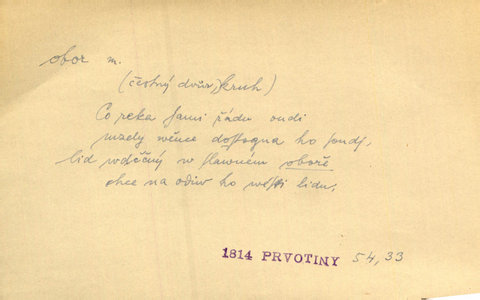 obor m.
(čestný dvůr, kruh)
Co reka Jami řádu oudi
wzely wěnce dosťogna ho
lid wděčný w slawném oboře
chce na odiw ho wésti lidu,
1814 PRVOTINY 54, 33